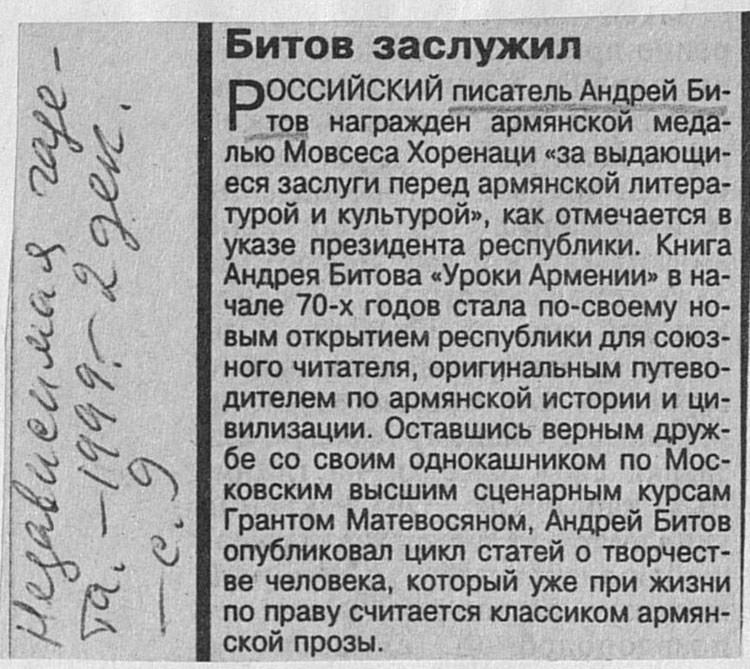 Независимая газе-
та. – 1999. – 2 дек.
– с. 9
Битов заслужил
РОССИЙСКИЙ писатель Андрей Би-
тов награжден армянской меда-
лью Мовсеса Хоренаци «за выдающи-
еся заслуги перед армянской литера-
турой и культурой», как отмечается в
указе президента республики. Книга
Андрея Битова «Уроки Армении» в на-
чале 70-х годов стала по-своему но-
вым открытием республики для союз-
ного читателя, оригинальным путево-
дителем по армянской истории и ци-
вилизации. Оставшись верным друж-
бе со своим однокашником по Мос-
ковским высшим сценарным курсам
Грантом Матевосяном, Андрей Битов
опубликовал цикл статей о творчест-
ве человека, который уже при жизни
по праву считается классиком армян-
ской прозы.